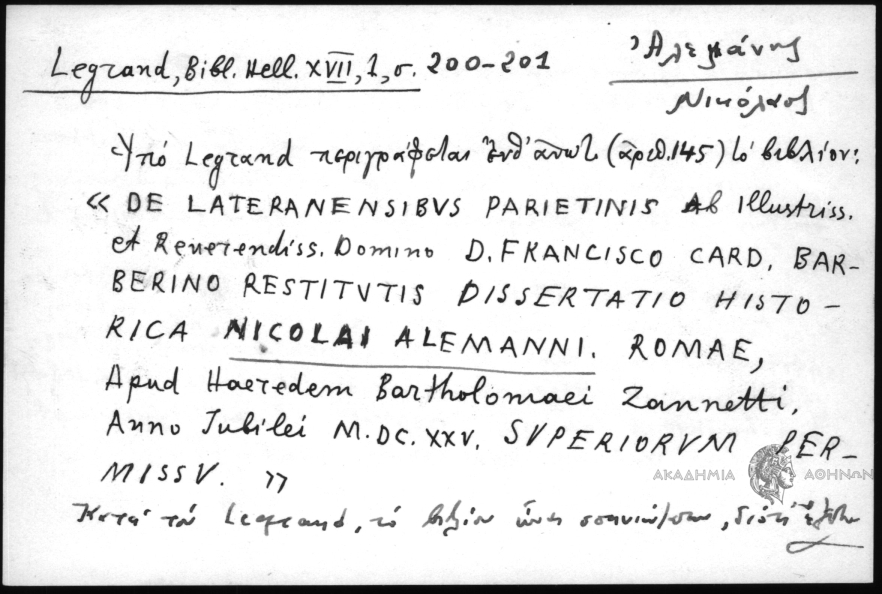 Legrand, Bibl. Hell. XVII, 1, σ. 200-201
Ἀλεμάνης
Νικόλαος
Ὑπὸ Legrand περιγράφεται (ἀριθ. 145) τὸ βιβλίον:
« DE LATERANENSIBVS PARIETINIS Ab Illustriss.
et Reverendiss. Domino D. FRANCISCO CARD. BAR-
BERINO RESTITVTIS DISSERTATIO HISTO-
RICA NICOLAI ALEMANNI. ROMAE,
Apud Haeredem Bartholomaei Zannetti,
Anno Jubilei M.DC.XXV. SVPERIORVM PER-
MISSV. »
ΑΚΑΔΗΜΙΑ ΑΘΗΝΩΝ
Κατὰ τὸν Legrand, τὸ βιβλίον εἶναι σπανιώτατον, διότι